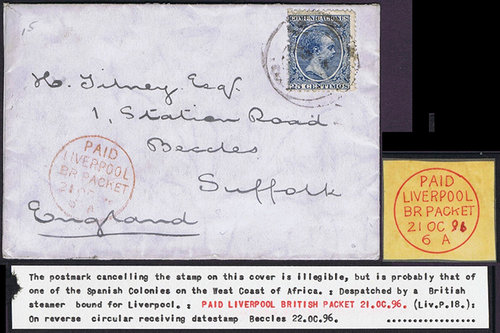 15
COMUNICACIONES
25 CENTIMOS
H. Tilney Esqr.
1, Station Road
Beccles
Suffolk
England
PAID
LIVERPOOL
BR PACKET
21 OC
6 A
PAID
LIVERPOOL
BR PACKET
21 OC 96
6 A
The postmark cancelling the stamp on this cover is illegible, but is probably that of
one of the Spanish Colonies on the West Coast of Africa. : Despatched by a British
steamer bound for Liverpool. : PAID LIVERPOOL BRITISH PACKET 21.OC.96. (Liv.P.18.):
On reverse circular receiving datestamp Beccles 22.OC.96. ..................